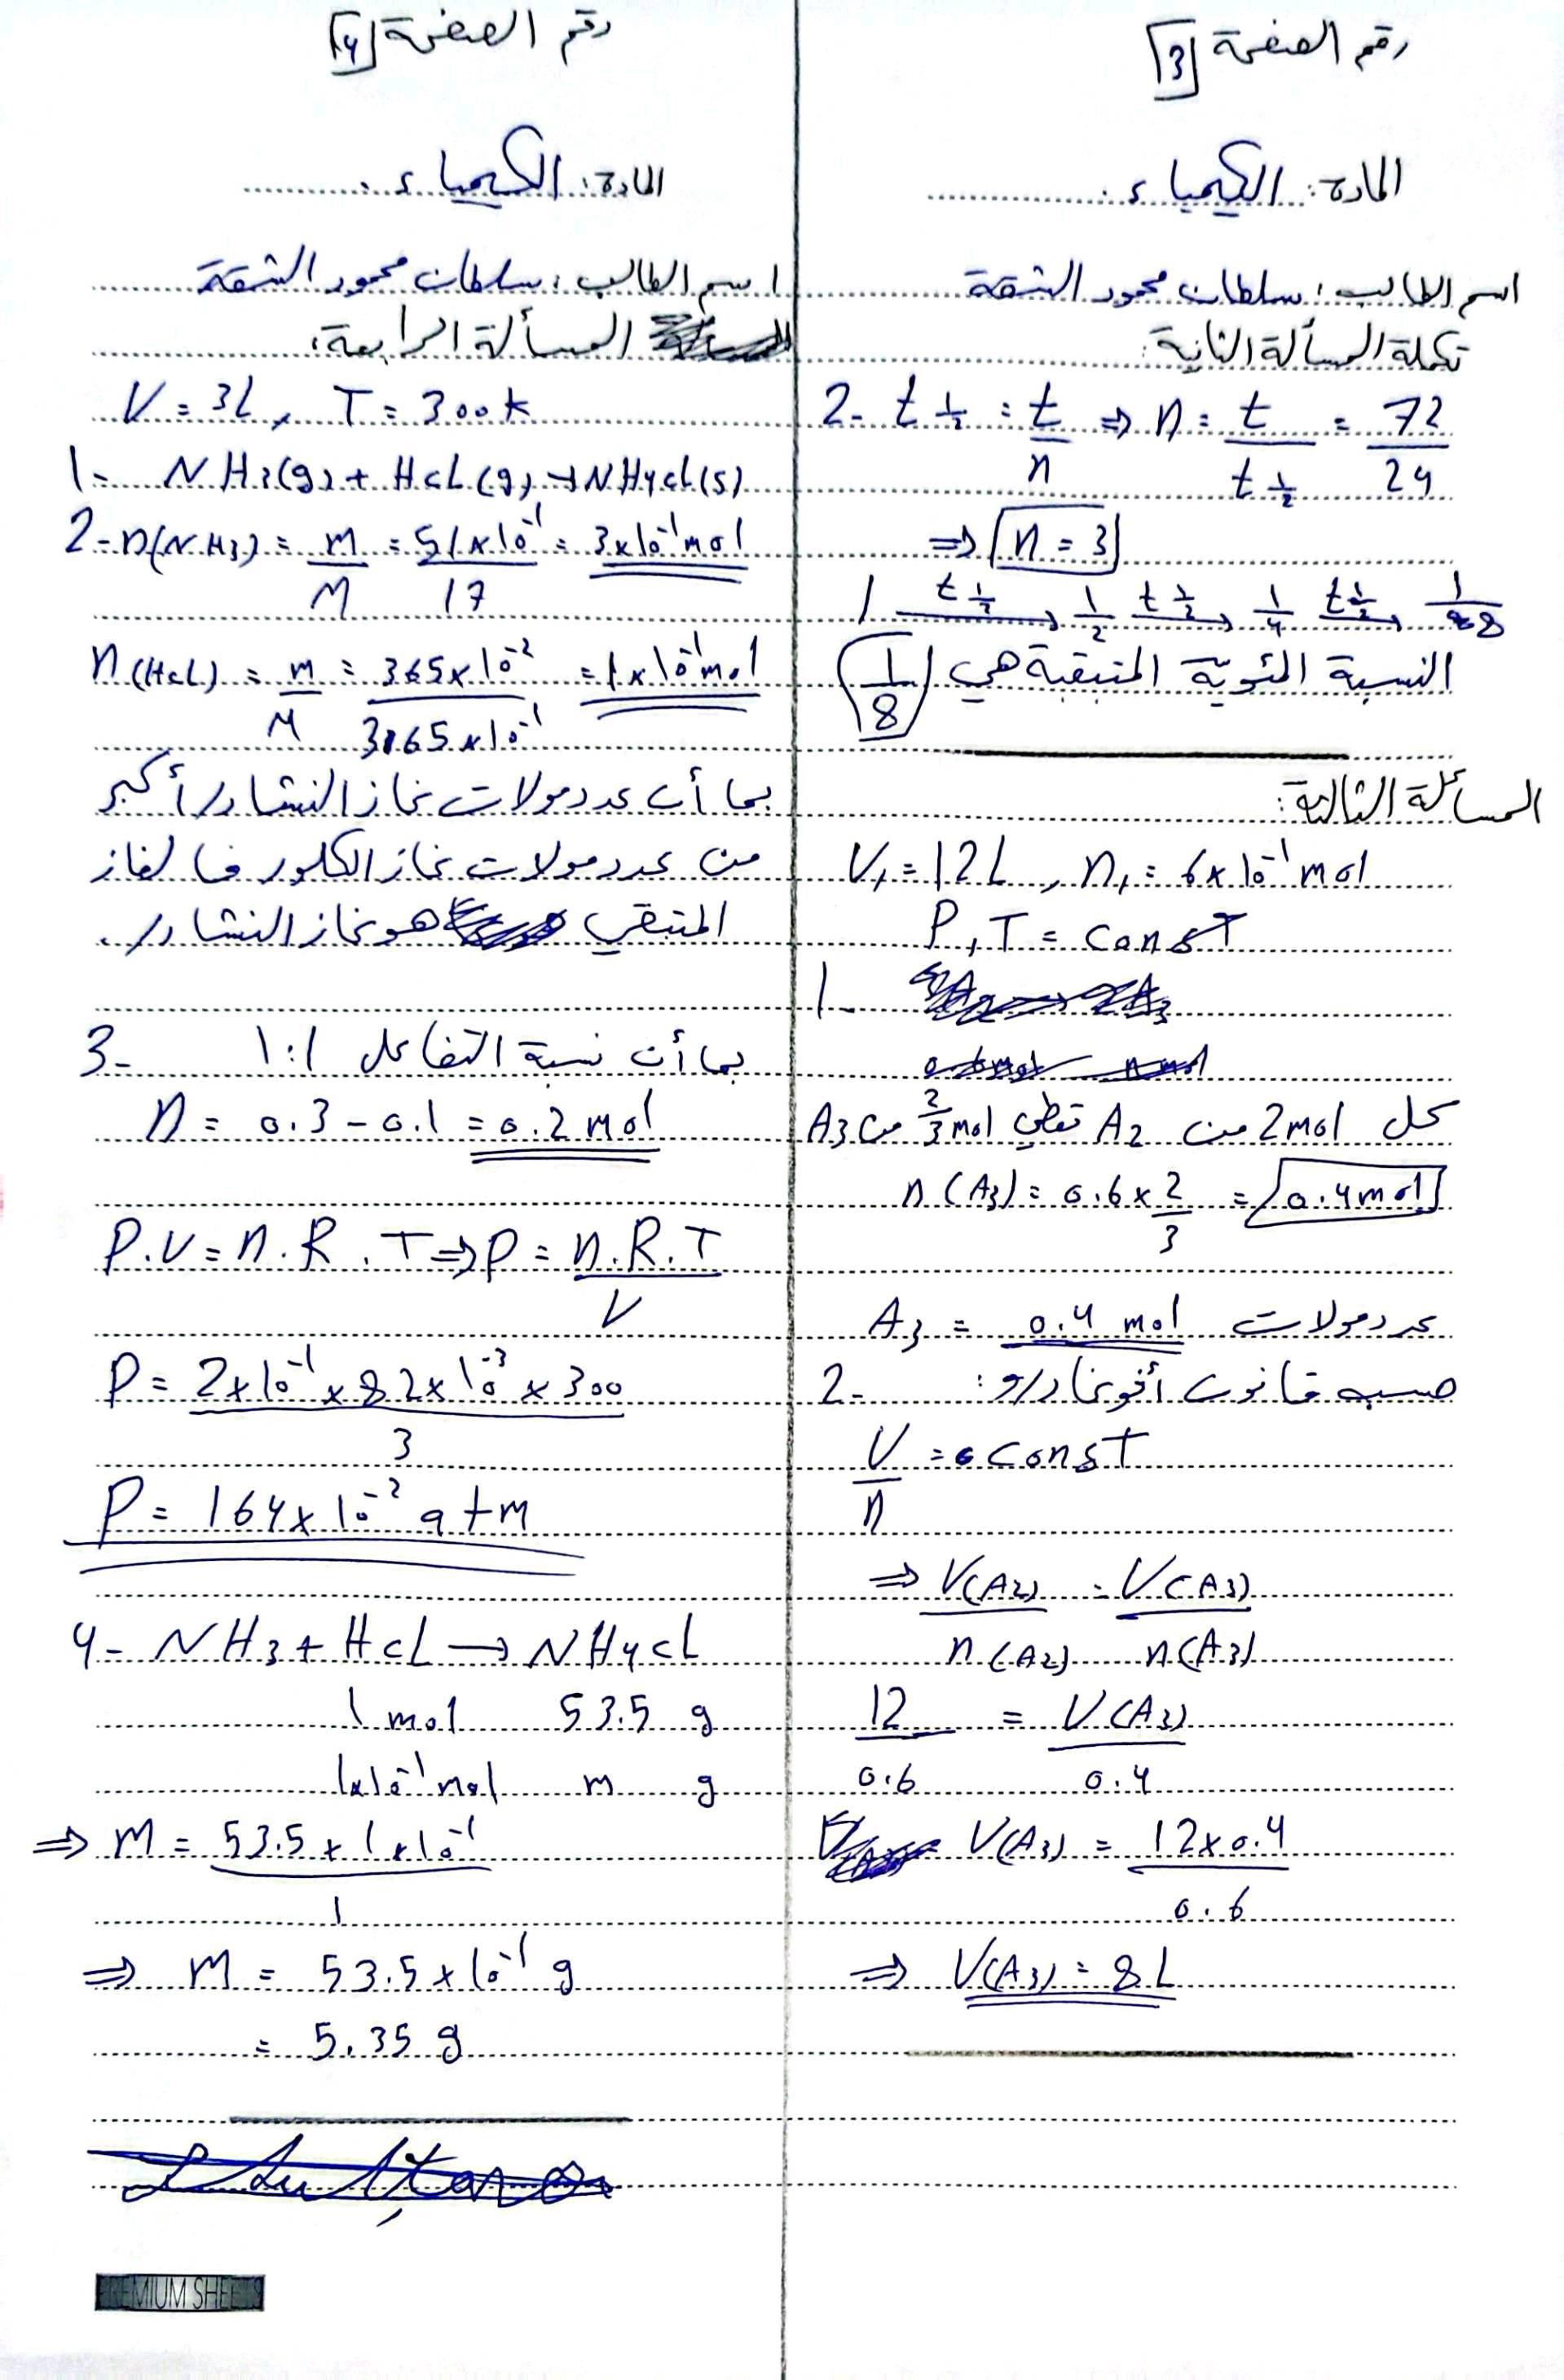 رقم الصفحة [3]
المادة: الكيمياء
اسم الطالب: سلطان محمود الشقة
تكملة المسألة الثانية:
2- t 1/2 = t/n ⇒ n = t / t 1/2 = 72/24
⇒ n = 3
1 —t 1/2→ 1/2 —t 1/2→ 1/4 —t 1/2→ 1/8
النسبة المئوية المتبقية هي 1/8
المسألة الثالثة:
V₁ = 12 L , n₁ = 6 x 10⁻¹ mol
P , T = const
1-
كل 2 mol من A2 تعطي 2/3 mol من A3
n (A3) = 0.6 x 2/3 = 0.4 mol
عدد مولات A3 = 0.4 mol
2- حسب قانون أفوغادرو:
V/n = const
⇒ V(A2) / n(A2) = V(A3) / n(A3)
12 / 0.6 = V(A3) / 0.4
V(A3) = 12 x 0.4 / 0.6
⇒ V(A3) = 8 L
رقم الصفحة [4]
المادة: الكيمياء
اسم الطالب: سلطان محمود الشقة
المسألة الرابعة:
V = 3L , T = 300 k
1- NH3(g) + HcL(g) → NH4cl(s)
2- n(NH3) = m/M = 51 x 10⁻¹ / 17 = 3 x 10⁻¹ mol
n(HcL) = m/M = 365 x 10⁻² / 365 x 10⁻¹ = 1 x 10⁻¹ mol
بما أن عدد مولات غاز النشادر أكبر
من عدد مولات غاز الكلور فالغاز
المتبقي هو غاز النشادر.
3- بما أن نسبة التفاعل 1:1
n = 0.3 - 0.1 = 0.2 mol
P.V = n.R.T ⇒ P = n.R.T / V
P = 2 x 10⁻¹ x 82 x 10⁻³ x 300 / 3
P = 164 x 10⁻² atm
4- NH3 + HcL → NH4cL
1 mol 53.5 g
1x10⁻¹ mol m g
⇒ m = 53.5 x 1 x 10⁻¹ / 1
⇒ m = 53.5 x 10⁻¹ g
= 5.35 g
PREMIUM SHEETS